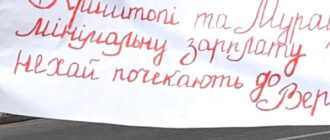 Криштопі та Мура
мінімальну зарплату
нехай почекають до Вер